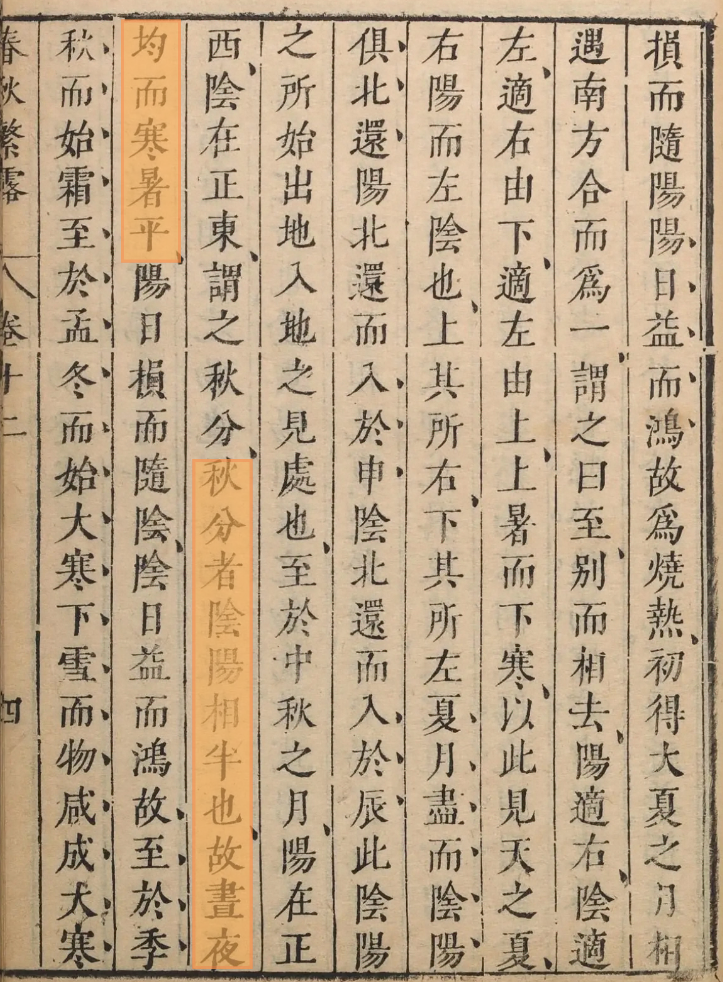 損而隨陽陽日益而鴻故爲燒熱初得大夏之月相
遇南方合而爲一謂之曰至别而相去陽適右陰適
左適右由下適左由上上暑而下寒以此見天之夏
右陽而左陰也上其所右下其所左夏月盡而陰陽
俱北還陽北還而入於申陰北還而入於辰此陰陽
之所始出地入地之見處也至於中秋之月陽在正
西陰在正東謂之秋分秋分者陰陽相半也故晝夜
均而寒暑平陽日損而隨陰陰日益而鴻故至於季
秋而始霜至於孟冬而始大寒下雪而物咸成大寒
春秋繁露 卷十二 四